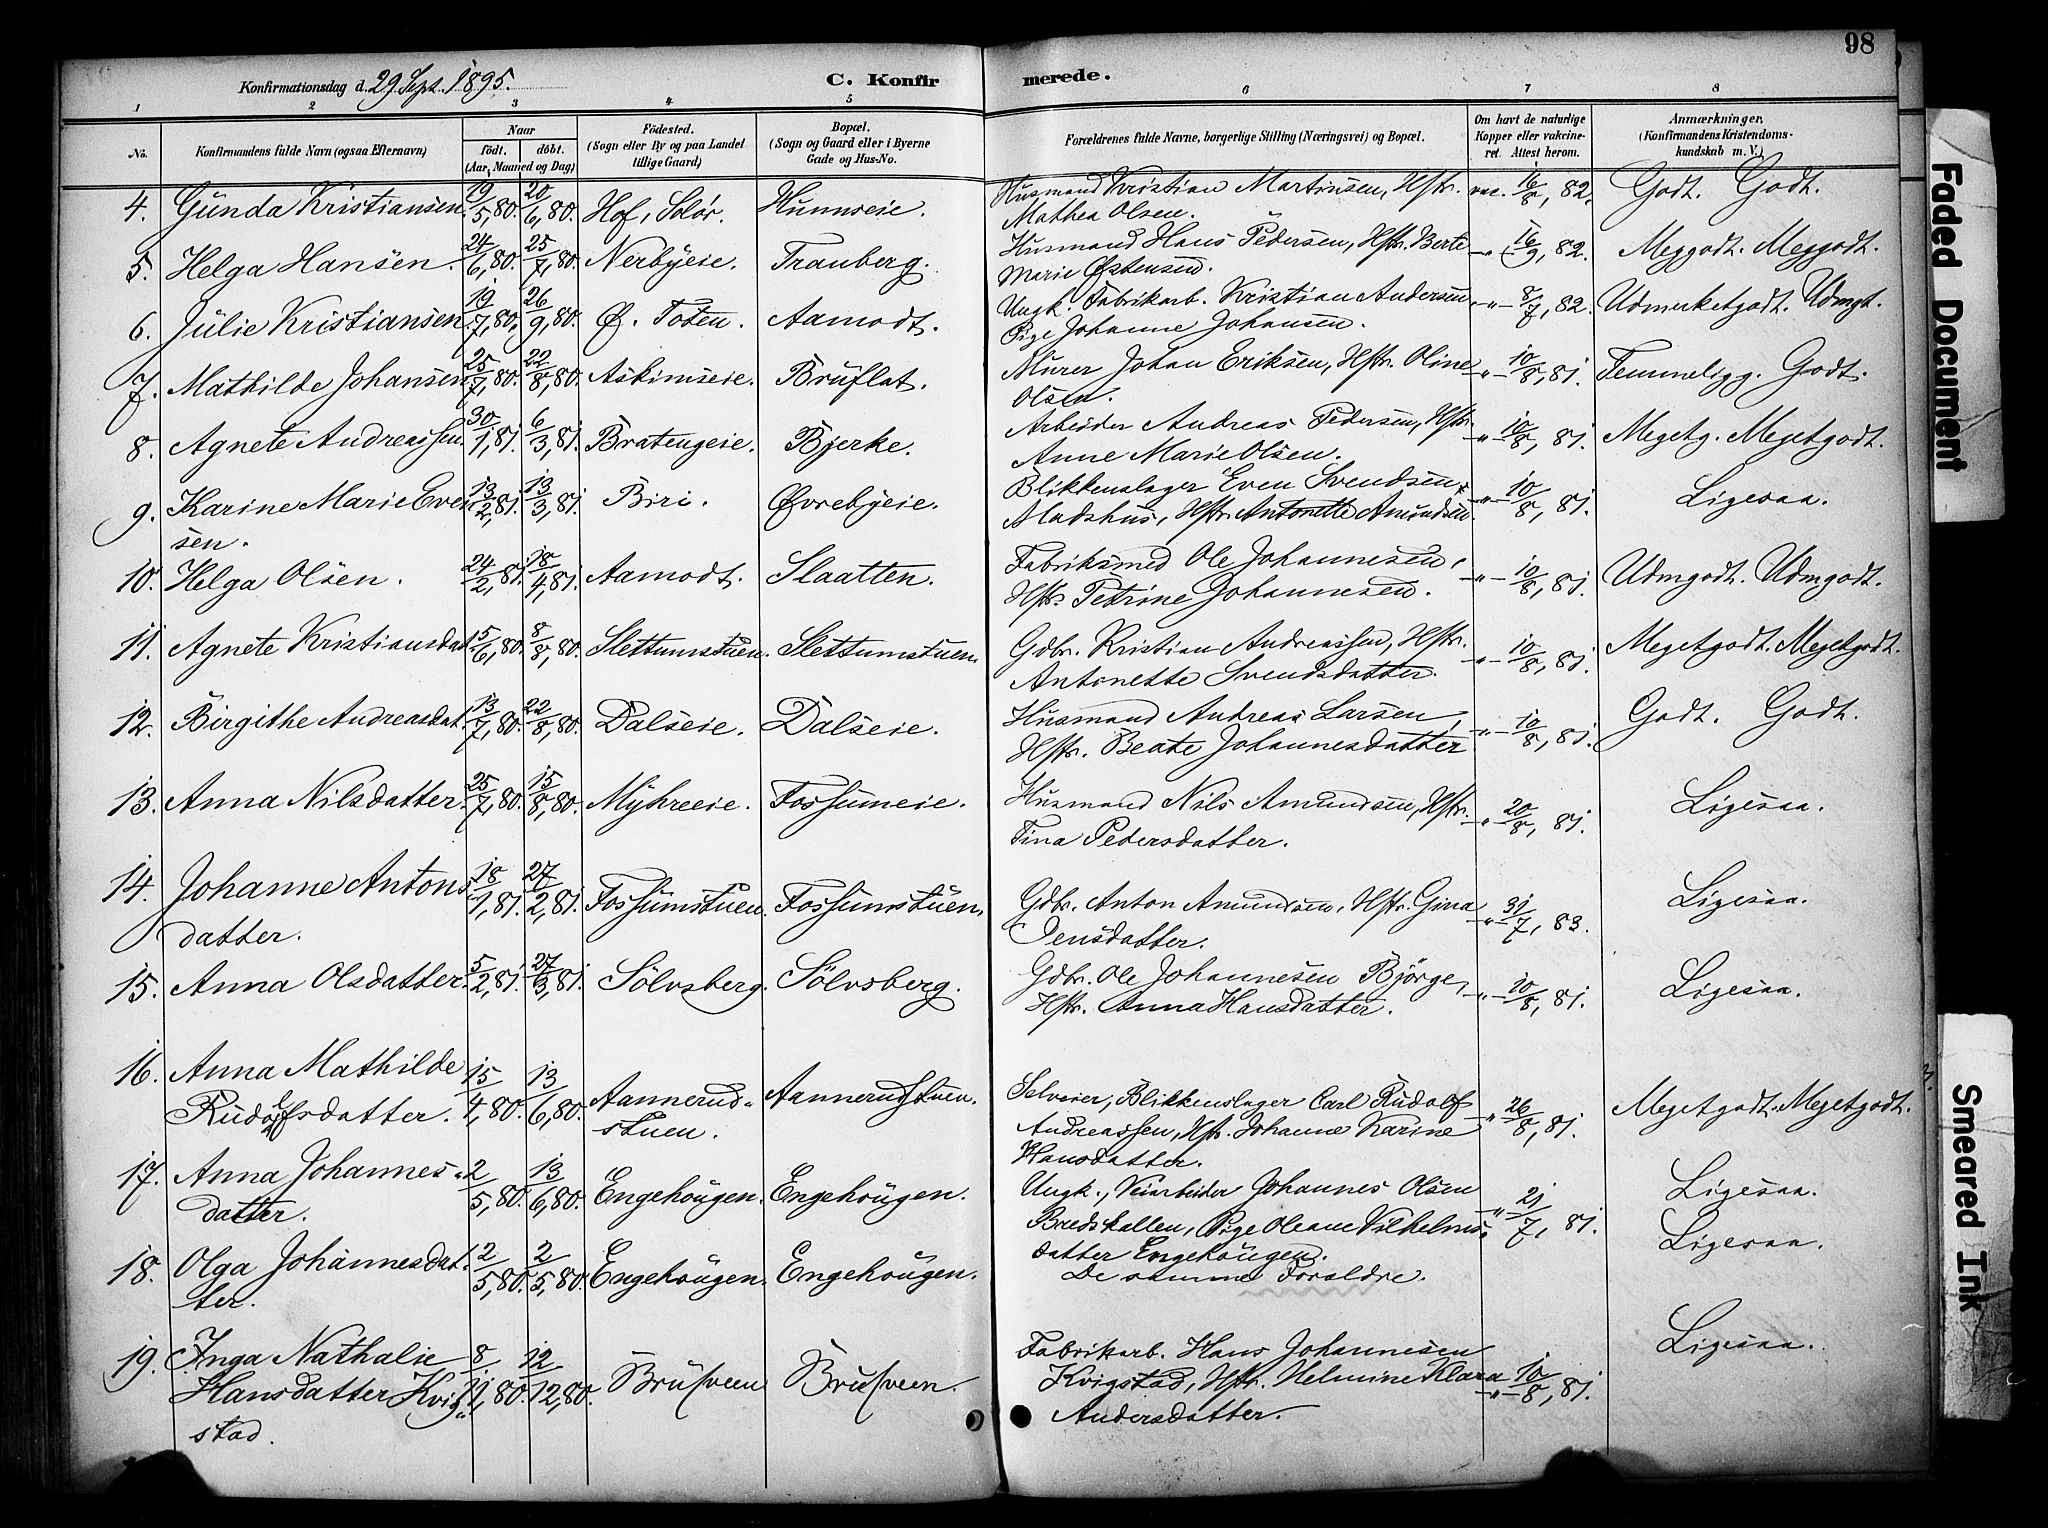 98
Konfirmationsdag d. 29 Sept. 1895.
C. Konfirmerede.
1 2 3 4 5 6 7 8
No.
Konfirmandens fulde Navn (ogsaa Efternavn)
Naar
Födt. döbt.
(Aar, Maaned og Dag)
Födested.
(Sogn eller By og paa Landet
tillige Gaard)
Bopæl.
(Sogn og Gaard eller i Byerne
Gade og Hus-No.
Forældrenes fulde Navne, borgerlige Stilling (Næringsvei) og Bopæl.
Om havt de naturlige
Kopper eller vakcine-
ret. Attest herom.
Anmærkninger.
(Konfirmandens Kristendoms-
kundskab m. V.)
4. Gunda Kristiansen. 19/5, 80. 20/6, 80. Hof, Solør. Hunnseie. Husmand Kristian Martinsen, Hstr. vac. 16/8, 82. Godt. Godt.
Mathea Olsen.
5. Helga Hansen. 24/6, 80. 25/7, 80. Nerbyeie. Trauberg. Husmand Hans Pedersen, Hstr. Berte -"- 16/9, 82. Meggodt. Meggodt.
Marie Østensen.
6. Julie Kristiansen 19/7, 80. 26/9, 80. Ø. Toten. Aamodt. Ungk. Fabrikarb. Kristian Andersen -"- 8/7, 82. Udmerketgodt. Udmgt.
Pige Johanne Johansen.
7. Mathilde Johansen 25/7, 80. 22/8, 80. Askimseie. Bruflat. Murer Johan Eriksen, Hstr. Oline -"- 10/8, 81. Temmeligg. Godt.
Olsen.
8. Agnete Andreassen. 30/1, 81. 6/3, 81. Bratengeie. Bjerke. Arbeider Andreas Pedersen, Hstr. -"- 10/8, 81. Megetg. Megetgodt.
Anne Marie Olsen.
9. Karine Marie Even 13/2, 81. 13/3, 81. Biri. Øvrebyeie. Blikkenslager Even Svendsen -"- 10/8, 81. Ligesaa.
sen. Madshus, Hstr. Antonette Amundsen.
10. Helga Olsen. 24/2, 81. 18/4, 81. Aamodt. Slaatten. Fabriksmed Ole Johannesen, -"- 10/8, 81. Udmgodt. Udmgodt.
Hstr. Petrine Johannesen.
11. Agnete Kristiansdat. 5/6, 80. 8/8, 80. Slettumstuen. Slettumstuen. Gdbr. Kristian Andreassen, Hstr. -"- 10/8, 81. Megetgodt. Megetgodt.
Antonette Svendsdatter.
12. Birgithe Andreasdat. 13/7, 80. 22/8, 80. Dalseie. Dalseie. Husmand Andreas Larsen, -"- 10/8, 81. Godt. Godt.
Hstr. Beate Johannesdatter
13. Anna Nilsdatter. 25/7, 80. 15/8, 80. Myhreeie. Fossumeie. Husmand Nils Amundsen, Hstr. -"- 20/8, 81. Ligesaa.
Tina Pedersdatter.
14. Johanne Antons 18/1, 81. 27/2, 81. Fossumstuen. Fossumstuen. Gdbr. Anton Amundsen, Hstr. Gina -"- 31/7, 83. Ligesaa.
datter. Jensdatter.
15. Anna Olsdatter. 5/2, 81. 27/3, 81. Sölvsberg. Sölvsberg. Gdbr. Ole Johannesen Björge, -"- 10/8, 81. Ligesaa.
Hstr. Anna Hansdatter.
16. Anna Mathilde 15/4, 80. 13/6, 80. Aannerud- Aannerudstuen. Selveier, Blikkenslager Carl Rudolf -"- 26/8, 81. Megetgodt. Megetgodt.
Rudolfsdatter. stuen. Andreassen, Hstr. Johanne Karine
Hansdatter.
17. Anna Johannes- 2/5, 80. 13/6, 80. Engehougen. Engehougen. Ungk., Veiarbeider Johannes Olsen -"- 21/7, 81. Ligesaa.
datter. Bredskallen, Pige Oleane Vilhelms-
datter Engehougen.
18. Olga Johannesdat 2/5, 80. 2/5, 80. Engehougen. Engehougen. De samme Forældre. Ligesaa.
ter.
19. Inga Nathalie 8/11, 80. 12/12, 80. Brusveen Brusveen. Fabrikarb. Hans Johannesen -"- 10/8, 81. Ligesaa.
Hansdatter Kvig- Kvigstad, Hstr. Helmine Klara
stad. Andersdatter.
Faded Document
Smeared Ink